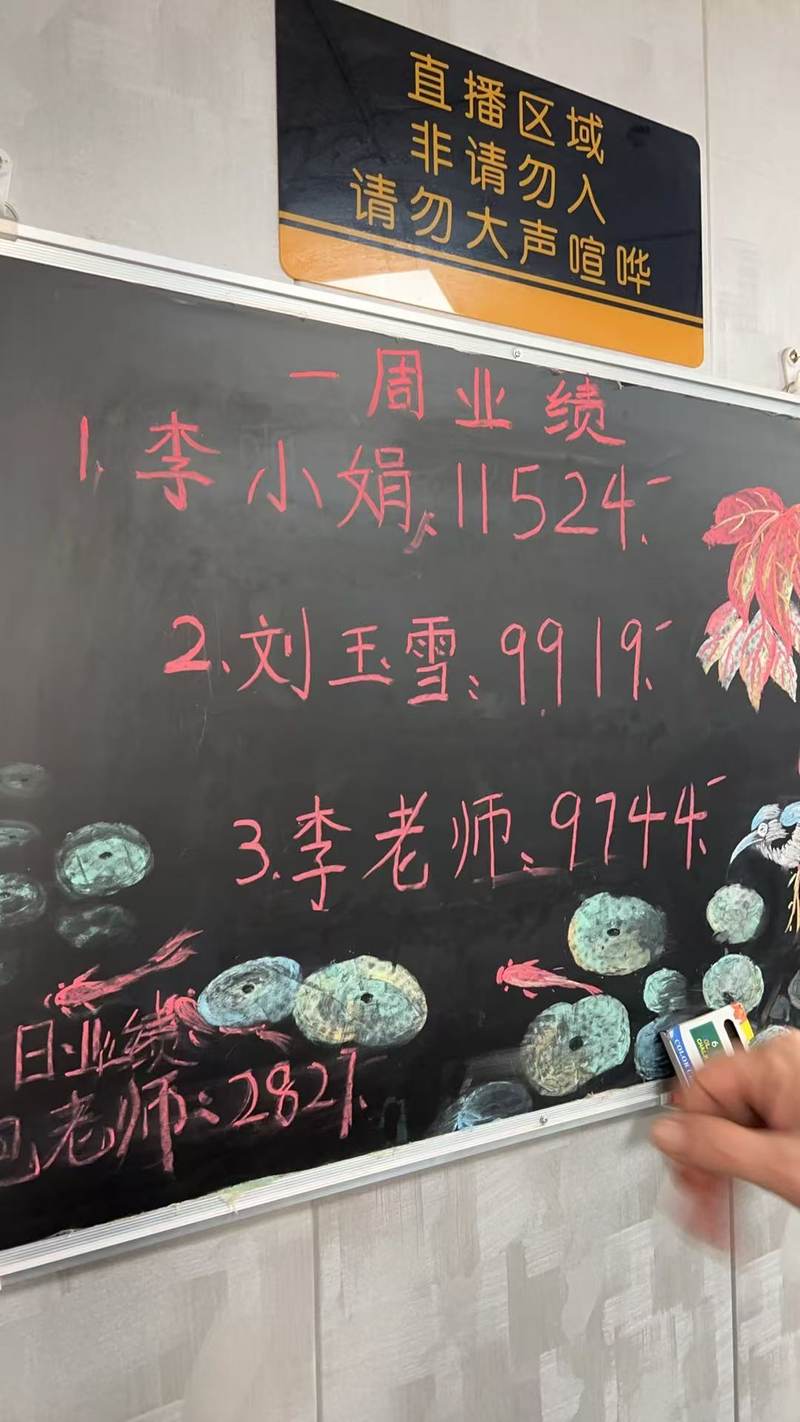 直播区域
非请勿入
请勿大声喧哗
一周业绩
1、李小娟:11524.-
2、刘玉雪:9919.-
3.李老师:9744.-
日业绩
老师:2821.-
COLOR
6